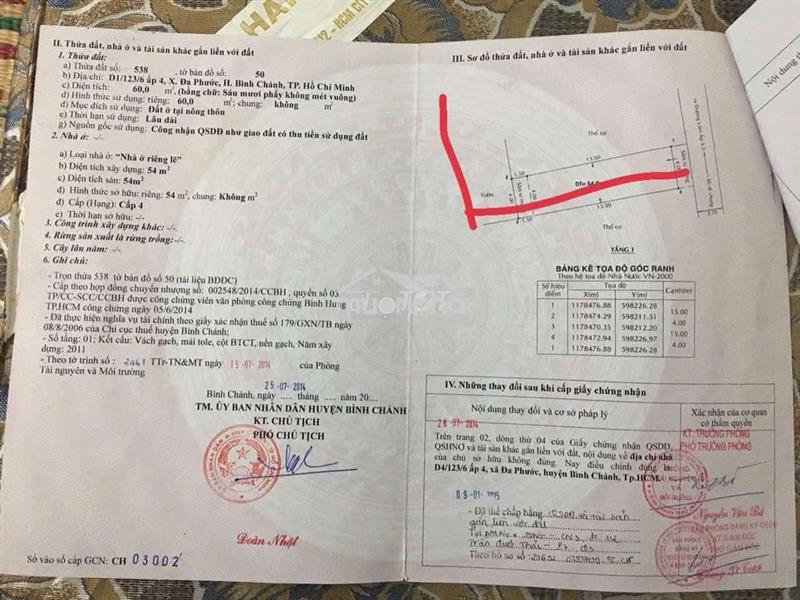 II. Thửa đất, nhà ở và tài sản khác gắn liền với đất
1. Thửa đất:
a) Thửa đất số: 538 tờ bản đồ số: 50
b) Địa chỉ: D1/123/6 ấp 4, X. Đa Phước, H. Bình Chánh, TP. Hồ Chí Minh
c) Diện tích: 60,0 m²; (bằng chữ: Sáu mươi phẩy không mét vuông)
d) Hình thức sử dụng: riêng: 60,0 m²; chung: không m²
đ) Mục đích sử dụng: Đất ở tại nông thôn
e) Thời hạn sử dụng: Lâu dài
g) Nguồn gốc sử dụng: Công nhận QSDĐ như giao đất có thu tiền sử dụng đất
2. Nhà ở: -/-
a) Loại nhà ở: "Nhà ở riêng lẻ"
b) Diện tích xây dựng: 54 m²
c) Diện tích sàn: 54m²
d) Hình thức sở hữu: riêng: 54 m², chung: Không m²
đ) Cấp (Hạng): Cấp 4
e) Thời hạn sở hữu: -/-
3. Công trình xây dựng khác: -/-
4. Rừng sản xuất là rừng trồng: -/-
5. Cây lâu năm: -/-
6. Ghi chú:
- Trọn thửa 538 tờ bản đồ số 50 (tài liệu BĐĐC)
- Cấp theo hợp đồng chuyển nhượng số: 002548/2014/CCBH , quyển số 03
TP/CC-SCC/CCBH được công chứng viên văn phòng công chứng Bình Hưng
TP.HCM công chứng ngày 05/6/2014
- Đã thực hiện nghĩa vụ tài chính theo giấy xác nhận thuế số 179/GXN/TB ngày
08/8/2006 của Chi cục thuế huyện Bình Chánh;
- Số tầng: 01; Kết cấu: Vách gạch, mái tole, cột BTCT, nền gạch, Năm xây
dựng: 2011
- Theo tờ trình số: 2461 TTr-TN&MT ngày 15-07-2014 của Phòng
Tài nguyên và Môi trường
25-07-2014
Bình Chánh, ngày ..... tháng ..... năm 20....
TM. ỦY BAN NHÂN DÂN HUYỆN BÌNH CHÁNH
KT. CHỦ TỊCH
PHÓ CHỦ TỊCH
Đoàn Nhật
Số vào sổ cấp GCN: CH 03002
III. Sơ đồ thửa đất, nhà ở và tài sản khác gắn liền với đất
Thổ cư
13.50
1.50
Vườn
4.00
4.00
13.50
1.50
Thổ cư
2.70
TẦNG 1
BẢNG KÊ TỌA ĐỘ GÓC RANH
Theo hệ tọa độ Nhà Nước VN-2000
Số hiệu điểm Tọa độ Cạnh(m)
X(m) Y(m)
1 1178476.88 598226.28
15.00
2 1178474.29 598211.51
4.00
3 1178470.35 598212.20
15.00
4 1178472.94 598226.97
4.00
1 1178476.88 598226.28
IV. Những thay đổi sau khi cấp giấy chứng nhận
Nội dung thay đổi và cơ sở pháp lý
Xác nhận của cơ quan có thẩm quyền
28-07-2014
KT. TRƯỞNG PHÒNG
PHÓ TRƯỞNG PHÒNG
Trên trang 02, dòng thứ 04 của Giấy chứng nhận QSDĐ,
QSHNO và tài sản khác gắn liền với đất, nội dung về địa chỉ nhà
của chủ sở hữu không đúng. Nay điều chỉnh đúng là:
D4/123/6 ấp 4, xã Đa Phước, huyện Bình Chánh, Tp.HCM
09-01-2015
- Đã thế chấp bằng QSDĐ và tài sản
gắn liền với đất
KT GIÁM ĐỐC
PHÓ GIÁM ĐỐC